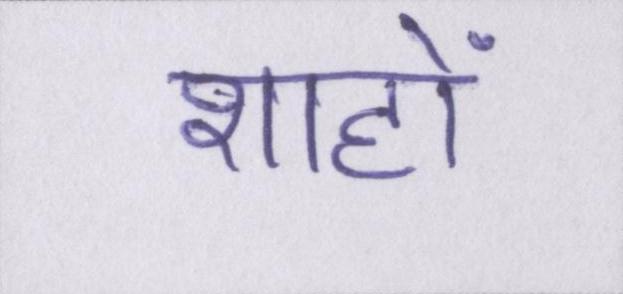 शाहों